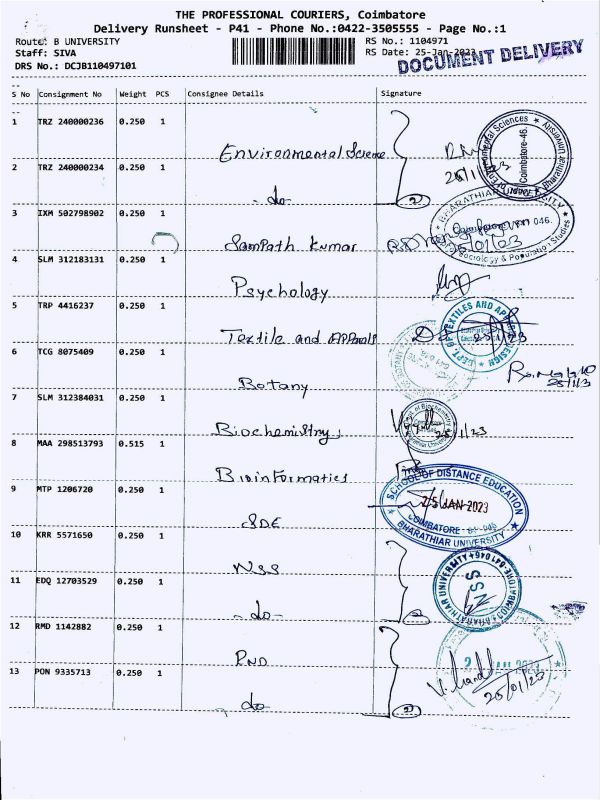 THE PROFESSIONAL COURIERS, Coimbatore
Delivery Runsheet - P41 - Phone No.:0422-3505555 - Page No.:1
Route: B UNIVERSITY
RS No.: 1104971
Staff: SIVA
RS Date: 25-Jan-2023
DRS No.: DCJB110497101
DOCUMENT DELIVERY
S No Consignment No Weight PCS Consignee Details Signature
1 TRZ 240000236 0.250 1
Environmental Science
25/1/23
2 TRZ 240000234 0.250 1
-do- 2
3 IXM 502798902 0.250 1
Sampath Kumar
25/01/23
BHARATHIAR UNIVERSITY
Sociology & Population Studies
4 SLM 312183131 0.250 1
Psychology
5 TRP 4416237 0.250 1
Textile and Apparals
DEPT. OF TEXTILES AND APPAREL DESIGN
25/1/23
6 TCG 8075409 0.250 1
Botany
25/1/23
7 SLM 312384031 0.250 1
Biochemistry
25/1/23
8 MAA 298513793 0.515 1
Bioinformatics
9 MTP 1206720 0.250 1
SDE
SCHOOL OF DISTANCE EDUCATION
25 JAN 2023
COIMBATORE - 641 046
BHARATHIAR UNIVERSITY
10 KRR 5571650 0.250 1
NSS
11 EDQ 12703529 0.250 1
-do- 2
NSS
12 RMD 1142882 0.250 1
PND
13 PON 9335713 0.250 1
do 2
25/01/23